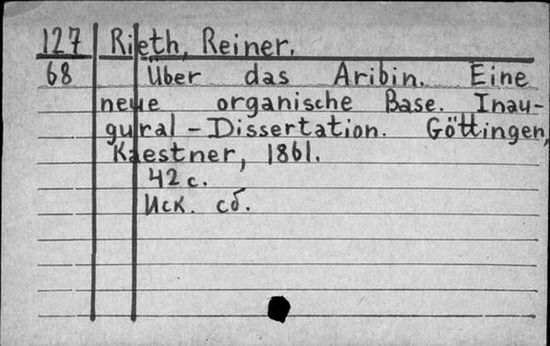 127 Rieth, Reiner.
68 Über das Aribin. Eine
neue organische Base. Inau-
gural - Dissertation. Göttingen,
Kaestner, 1861.
42 с.
Иск. сб.